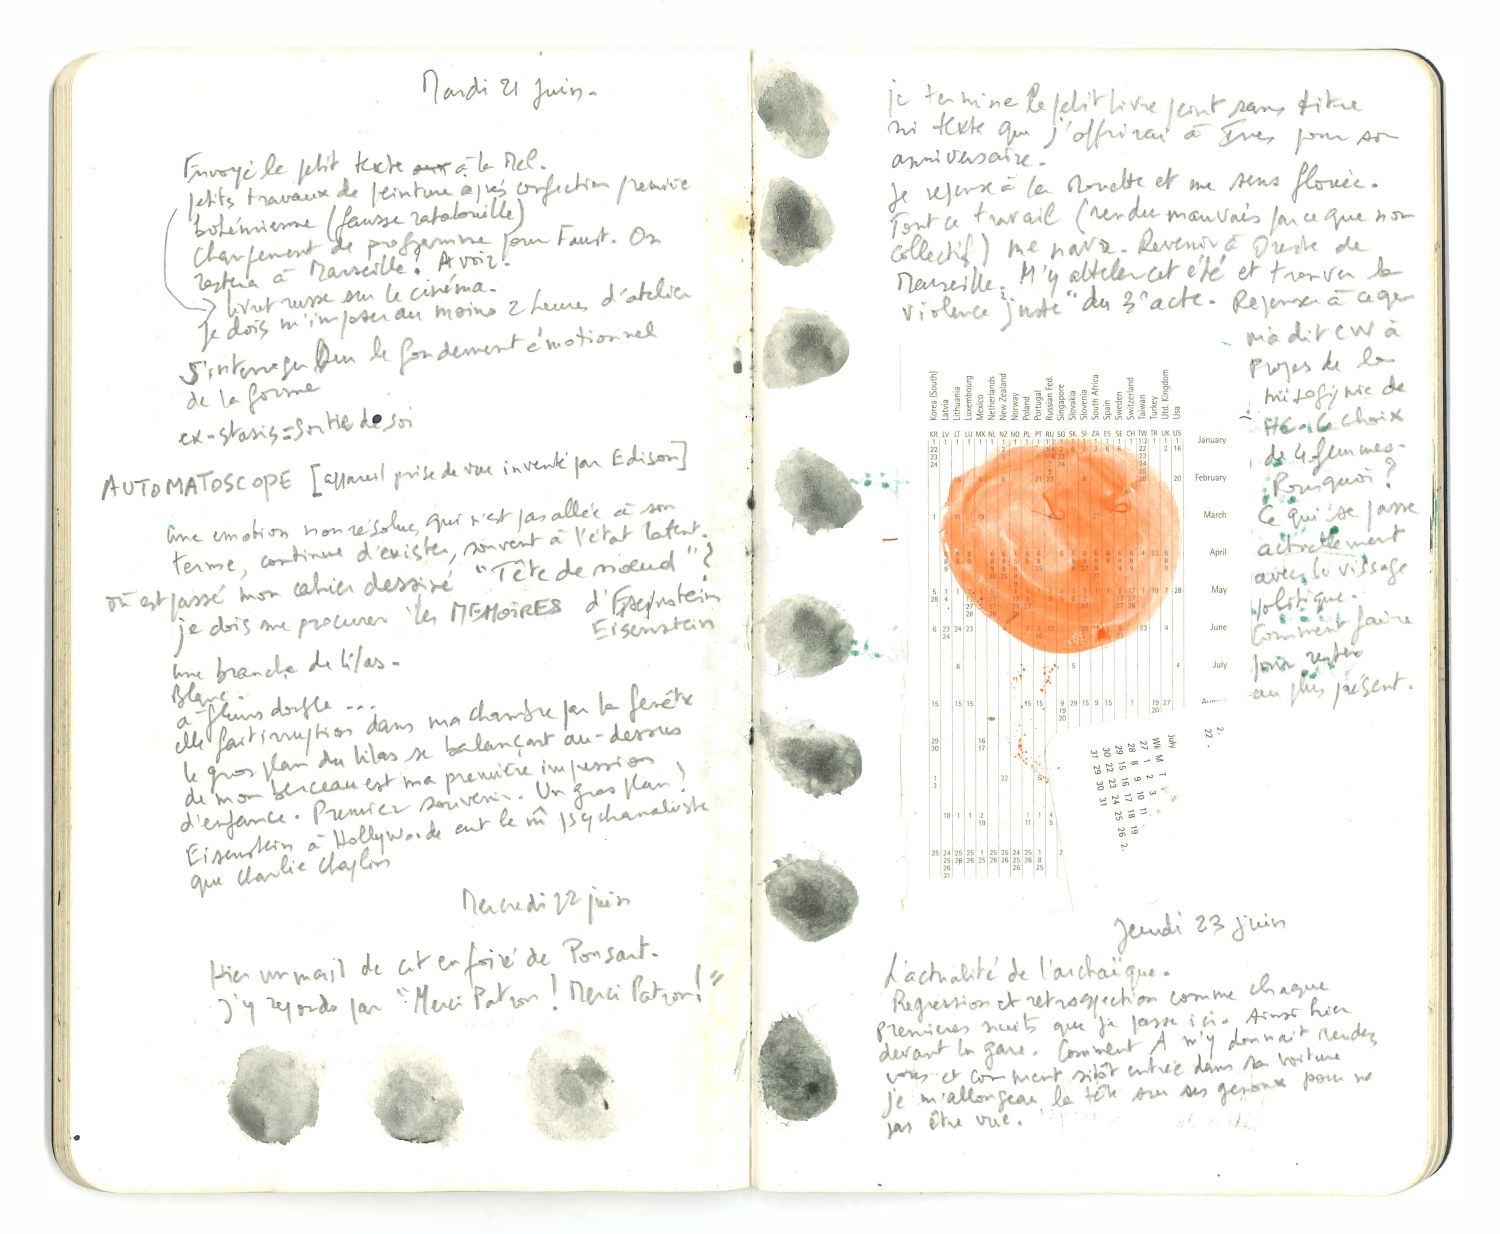 Mardi 21 juin.
Envoyé le petit texte à la Mel.
petits travaux de peinture après confection première
bohémienne (fausse ratatouille)
Changement de programme pour Faust. On
restera à Marseille? A voir.
livret russe sur le cinéma.
Je dois m'imposer au moins 2 heures d'atelier
S'interroger sur le fondement émotionnel
de la forme
ex-stasis = sorties de soi
AUTOMATOSCOPE [appareil prise de vue inventé par Edison]
une emotion non résolue, qui n'est pas allée à son
terme, continue d'exister, souvent à l'état latent.
où est passé mon cahier dessiné "Tête de nœud"?
je dois me procurer les MEMOIRES d'
Eisenstein
une branche de lilas.
Blanc.
à fleurs double ...
elle fait irruption dans ma chambre par la fenêtre
le gros plan du lilas se balançant au-dessus
de mon berceau est ma première impression
d'enfance. Premier souvenir. Un gros plan!
Eisenstein à Hollywoode eut le m̂ psychanaliste
que Charlie Chaplin
Mercredi 22 juin
Hier un mail de cet enfoiré de Ponsart.
J'y reponds par "Merci Patron! Merci Patron!"
je termine le petit livre peint sans titre
ni texte que j'offrirai à Ines pour son
anniversaire.
Je repense à la Mouette et me sens flouée.
Tout ce travail (rendu mauvais parce que non
collectif) me navre. Revenir à Oreste de
Marseille. M'y atteler cet été et trouver la
violence "juste" du 3e acte. Repenser à ce que
m'a dit CW à
propos de la
misogynie de
HC. Le choix
de 4 femmes.
Pourquoi?
Ce qui se passe
actuellement
avec le vissage
politique.
Comment faire
pour rester
au plus présent.
Korea (South)
Latvia
Lithuania
Luxembourg
Mexico
Netherlands
New Zealand
Norway
Poland
Portugal
Russian Fed.
Singapore
Slovakia
Slovenia
South Africa
Spain
Sweden
Switzerland
Taiwan
Turkey
Utd. Kingdom
Usa
KR LV LT LU MX NL NZ NO PL PT RU SG SK SI ZA ES SE CH TW TR UK US
January
February
March
April
May
June
July
July
Wk M T
27 1 2 3
28 8 9 10 11
29 15 16 17 18 19
30 22 23 24 25 26
31 29 30 31
Jeudi 23 juin
L'actualité de l'archaïque.
Regression et retrospection comme chaque
premieres nuits que je passe ici. Ainsi hier
devant la gare. Comment A m'y donnait rendez
vous et comment sitôt entrée dans sa voiture
je m'allongeai la tête sur ses genoux pour ne
pas être vue.